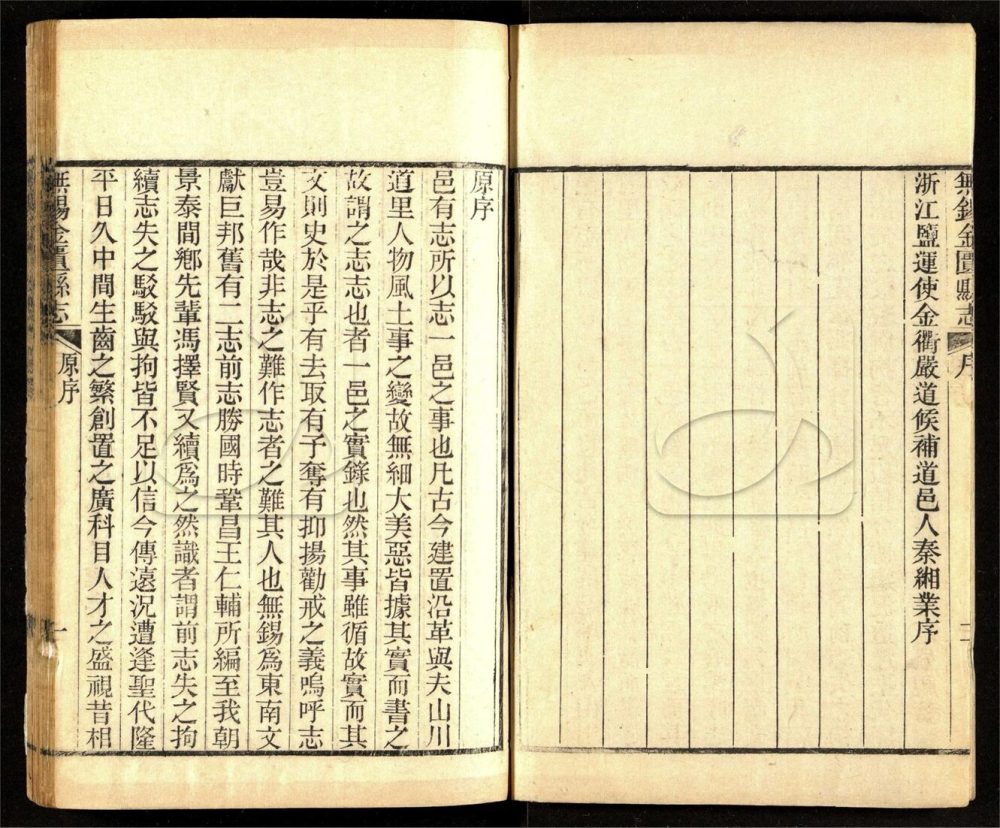 無錫金匱縣志 序 二
浙江鹽運使金衢嚴道候補道邑人秦緗業序
原序
邑有志所以志一邑之事也凡古今建置沿革與夫山川
道里人物風土事之變故無細大美惡皆據其實而書之
故謂之志志也者一邑之實錄也然其事雖循故實而其
文則史於是乎有去取有予奪有抑揚勸戒之義嗚呼志
豈易作哉非志之難作志者之難其人也無錫爲東南文
獻巨邦舊有二志前志勝國時鞏昌王仁輔所編至我朝
景泰間鄕先輩馮擇賢又續爲之然識者謂前志失之拘
續志失之駁駁與拘皆不足以信今傳遠況遭逢聖代隆
平日久中間生齒之繁創置之廣科目人才之盛視昔相
無錫金匱縣志 原序 一